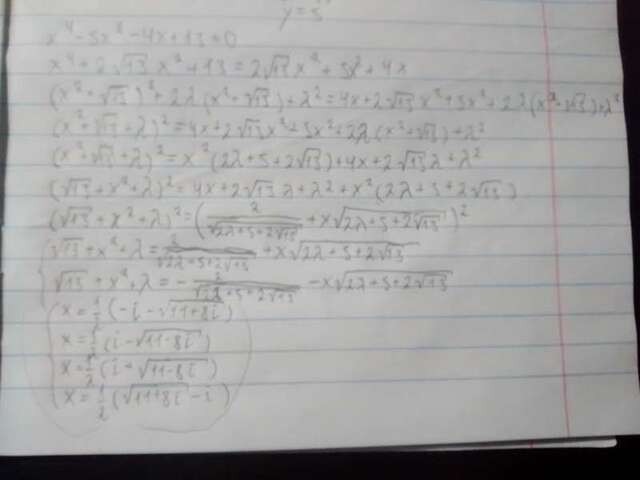 y=5
x⁴-5x²-4x+13=0
x⁴+2√13 x²+13=2√13x²+5x²+4x
(x²+√13)²+2λ(x²+√13)+λ²=4x+2√13x²+5x²+2λ(x²+√13)+λ²
(x²+√13+λ)²=4x+2√13x²+5x²+2λ(x²+√13)+λ²
(x²+√13+λ)²=x²(2λ+5+2√13)+4x+2√13λ+λ²
(√13+x²+λ)²=4x+2√13λ+λ²+x²(2λ+5+2√13)
(√13+x²+λ)²=(2/√(2λ+5+2√13)+x√(2λ+5+2√13))²
√13+x²+λ=2/√(2λ+5+2√13)+x√(2λ+5+2√13)
√13+x²+λ=-2/√(2λ+5+2√13)-x√(2λ+5+2√13)
x=1/2(-i-√(11+8i))
x=1/2(i-√(11-8i))
x=1/2(i+√(11-8i))
x=1/2(√(11+8i)-i)